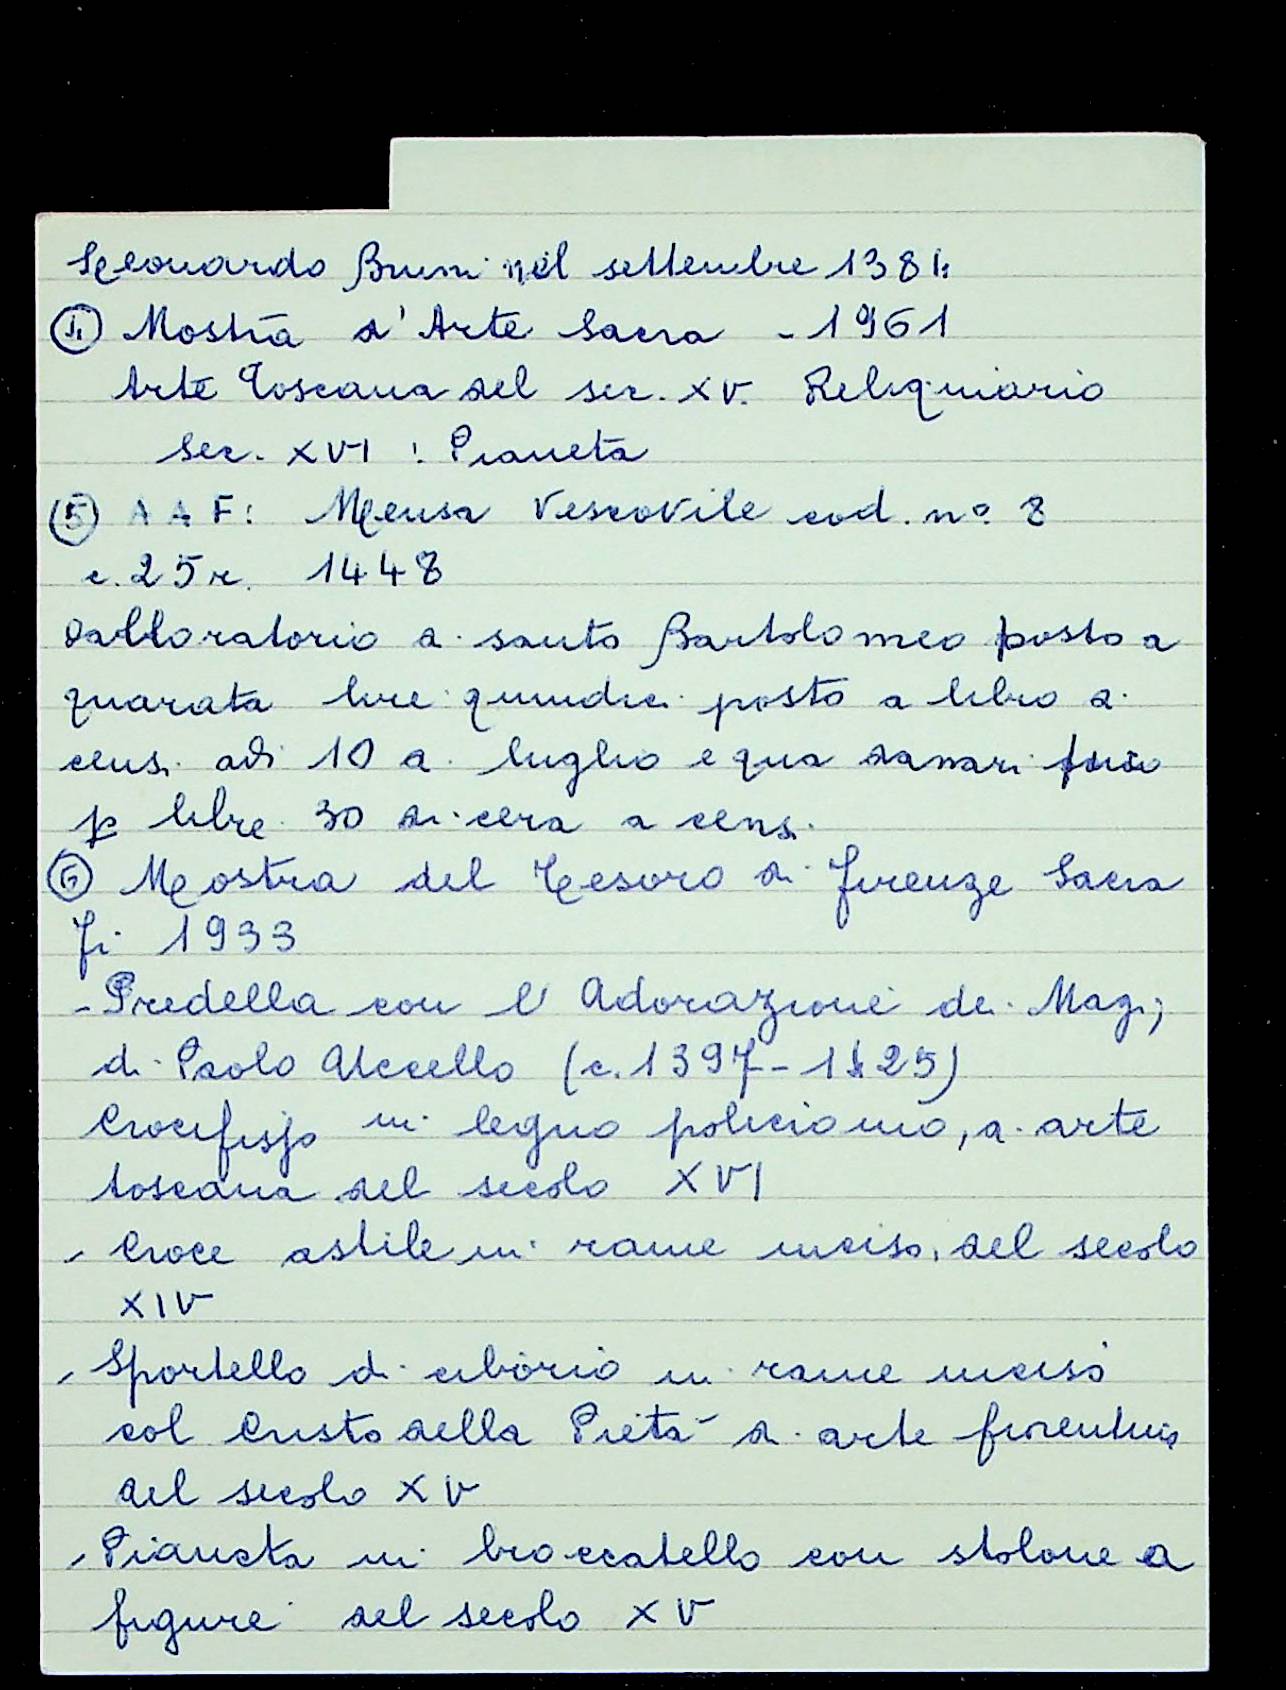 Leonardo Bruni nel settembre 1384
④ Mostra d'Arte Sacra - 1961
Arte Toscana del sec. XV. Reliquiario
Sec. XVI : Pianeta
⑤ A A F: Mensa Vescovile cod. n° 8
c. 25 r. 1448
Dalloratorio di santo Bartolomeo posto a
quarata lire quindici posto a libro di
censi adì 10 di luglio e qua danari
p libre 30 di cera a censi.
⑥ Mostra del Tesoro di Firenze Sacra
Fi 1933
- Predella con l'Adorazione dei Magi,
di Paolo Uccello (c. 1397-1425)
Crocifisso in legno policromo, di arte
toscana del secolo XVI
- Croce astile in rame inciso, del secolo
XIV
- Sportello di ciborio in rame inciso
col Cristo della Pietà di arte fiorentina
del secolo XV
- Pianeta in broccatello con stolone a
figure del secolo XV